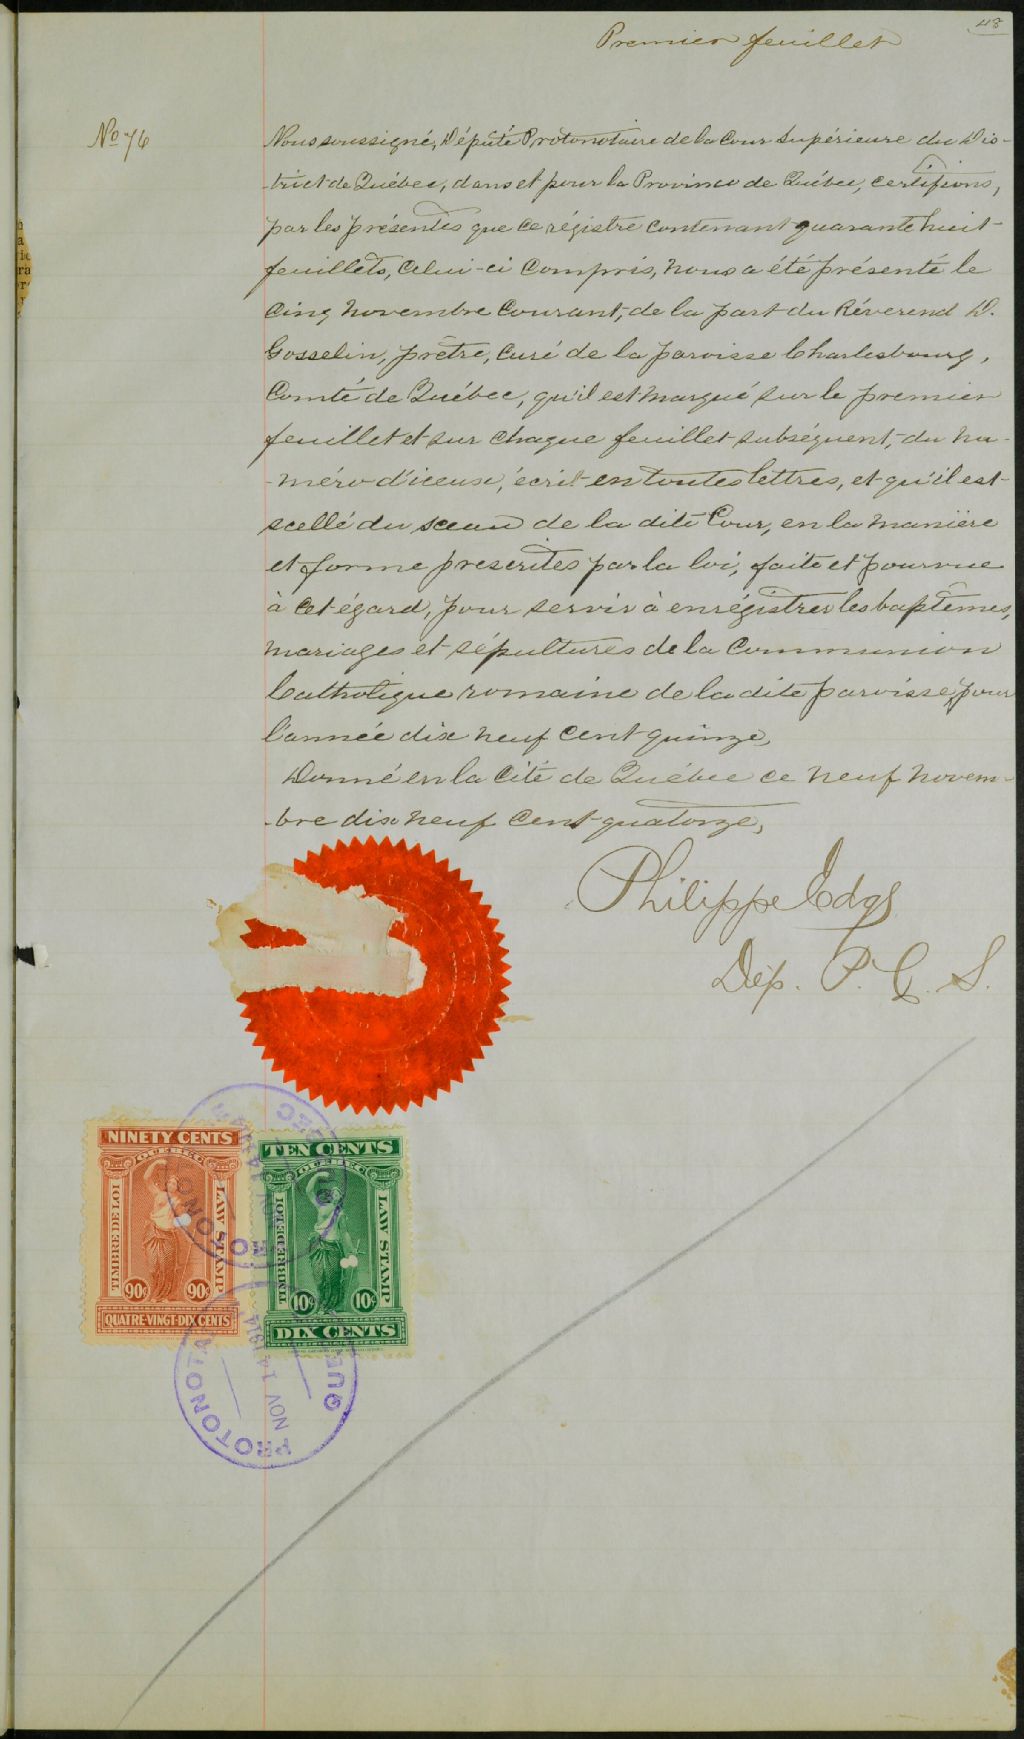 48
Premier feuillet
No 76
Nous soussigné, Député Protonotaire de la Cour Supérieure du Dis-
-trict de Québec, dans et pour la Province de Québec, certifions,
par les présentes que ce régistre contenant quarante huit
feuillets, celui-ci compris, nous a été présenté le
cinq novembre courant, de la part du Réverend D.
Gosselin, prêtre, curé de la paroisse Charlesbourg,
Comté de Québec, qu'il est marqué sur le premier
feuillet et sur chaque feuillet subséquent, du nu-
-méro d'iceux, écrit en toutes lettres, et qu'il est
scellé du sceau de la dite Cour, en la manière
et forme prescrites par la loi, faite et pourvue
à cet égard, pour servir à enrégistrer les baptêmes,
mariages et sépultures de la Communion
Catholique romaine de la dite paroisse, pour
l'année dix neuf cent quinze,
Donné en la Cité de Québec ce neuf novem-
-bre dix neuf cent quatorze,
Philippe
Dép. P. C. S.
NINETY CENTS
QUEBEC
TIMBRE DE LOI
LAW STAMP
90¢ 90¢
QUATRE-VINGT-DIX CENTS
TEN CENTS
QUEBEC
TIMBRE DE LOI
LAW STAMP
10¢ 10¢
DIX CENTS
PROTONOTA
NOV 14 1914
QUE